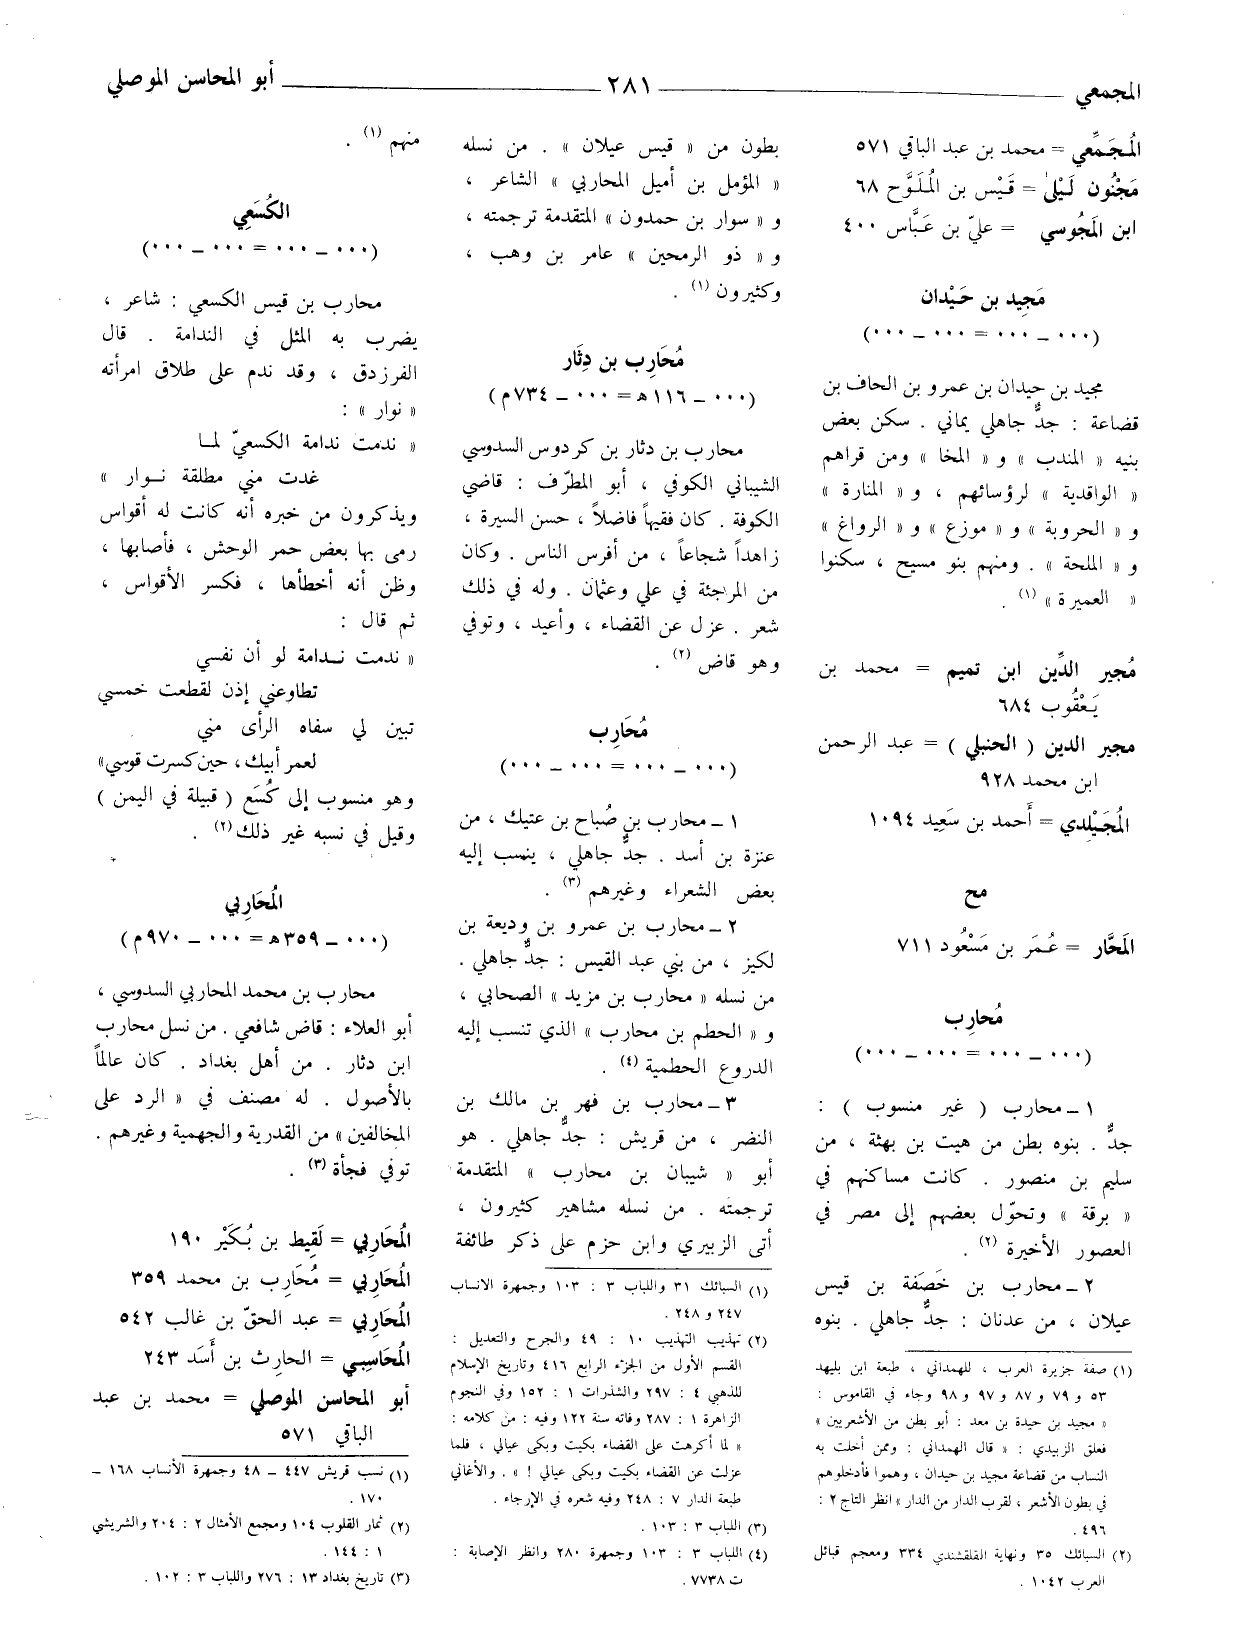 المجمعي ٢٨١ أبو المحاسن الموصلي
المُجَمِّعي = محمد بن عبد الباقي ٥٧١
مَجْنُون لَيْلىٰ = قَيْس بن المُلَوَّح ٦٨
ابن المَجُوسي = عليّ بن عَبَّاس ٤٠٠
مَجِيد بن حَيْدان
(٠٠٠ ــ ٠٠٠ = ٠٠٠ ــ ٠٠٠)
مجيد بن حيدان بن عمرو بن الحاف بن
قضاعة : جدٌّ جاهلي يماني . سكن بعض
بنيه « المندب » و « المخا » ومن قراهم
« الواقدية » لرؤسائهم ، و « المنارة »
و « الحروبة » و « موزع » و « الرواغ »
و « الملحة » . ومنهم بنو مسيح ، سكنوا
« العميرة » (١) .
مُجير الدِّين ابن تميم = محمد بن
يَعْقُوب ٦٨٤
مجير الدين ( الحنبلي ) = عبد الرحمن
ابن محمد ٩٢٨
المُجَيْلِدي = أَحمد بن سَعِيد ١٠٩٤
مح
المَحَّار = عُمَر بن مَسْعُود ٧١١
مُحارِب
(٠٠٠ ــ ٠٠٠ = ٠٠٠ ــ ٠٠٠)
١ ــ محارب ( غير منسوب ) :
جدٌّ . بنوه بطن من هيت بن بهثة ، من
سليم بن منصور . كانت مساكنهم في
« برقة » وتحوّل بعضهم إلى مصر في
العصور الأخيرة (٢) .
٢ ــ محارب بن خَصَفَة بن قيس
عيلان ، من عدنان : جدٌّ جاهلي . بنوه
(١) صفة جزيرة العرب ، للهمداني ، طبعة ابن بليهد
٥٣ و ٧٩ و ٨٧ و ٩٧ و ٩٨ وجاء في القاموس :
« مجيد بن حيدة بن معد : أبو بطن من الأشعريين »
فعلق الزبيدي : « قال الهمداني : وممن أخلت به
النساب من قضاعة مجيد بن حيدان ، وهموا فأدخلوهم
في بطون الأشعر ، لقرب الدار من الدار » انظر التاج ٢ :
٤٩٦ .
(٢) السبائك ٣٥ ونهاية القلقشندي ٣٣٤ ومعجم قبائل
العرب ١٠٤٢ .
بطون من « قيس عيلان » . من نسله
« المؤمل بن أميل المحاربي » الشاعر ،
و « سوار بن حمدون » المتقدمة ترجمته ،
و « ذو الرمحين » عامر بن وهب ،
وكثيرون (١) .
مُحَارِب بن دِثَار
(٠٠٠ ــ ١١٦ هـ = ٠٠٠ ــ ٧٣٤ م)
محارب بن دثار بن كردوس السدوسي
الشيباني الكوفي ، أبو المطرّف : قاضي
الكوفة . كان فقيهاً فاضلاً ، حسن السيرة ،
زاهداً شجاعاً ، من أفرس الناس . وكان
من المرجئة في علي وعثمان . وله في ذلك
شعر . عزل عن القضاء ، وأعيد ، وتوفي
وهو قاض (٢) .
مُحَارِب
(٠٠٠ ــ ٠٠٠ = ٠٠٠ ــ ٠٠٠)
١ ــ محارب بن صُباح بن عتيك ، من
عنزة بن أسد . جدٌّ جاهلي ، ينسب إليه
بعض الشعراء وغيرهم (٣) .
٢ ــ محارب بن عمرو بن وديعة بن
لكيز ، من بني عبد القيس : جدٌّ جاهلي .
من نسله « محارب بن مزيد » الصحابي ،
و « الحطم بن محارب » الذي تنسب إليه
الدروع الحطمية (٤) .
٣ ــ محارب بن فهر بن مالك بن
النضر ، من قريش : جدٌّ جاهلي . هو
أبو « شيبان بن محارب » المتقدمة
ترجمته . من نسله مشاهير كثيرون ،
أتى الزبيري وابن حزم على ذكر طائفة
(١) السبائك ٣١ واللباب ٣ : ١٠٣ وجمهرة الانساب
٢٤٧ و ٢٤٨ .
(٢) تهذيب التهذيب ١٠ : ٤٩ والجرح والتعديل :
القسم الأول من الجزء الرابع ٤١٦ وتاريخ الإسلام
للذهبي ٤ : ٢٩٧ والشذرات ١ : ١٥٢ وفي النجوم
الزاهرة ١ : ٢٨٧ وفاته سنة ١٢٢ وفيه : من كلامه :
« لما أكرهت على القضاء بكيت وبكى عيالي ، فلما
عزلت عن القضاء بكيت وبكى عيالي ! » . والأغاني
طبعة الدار ٧ : ٢٤٨ وفيه شعره في الإرجاء .
(٣) اللباب ٣ : ١٠٣ .
(٤) اللباب ٣ : ١٠٣ وجمهرة ٢٨٠ وانظر الإصابة :
ت ٧٧٣٨ .
منهم (١) .
الكُسَعِي
(٠٠٠ ــ ٠٠٠ = ٠٠٠ ــ ٠٠٠)
محارب بن قيس الكسعي : شاعر ،
يضرب به المثل في الندامة . قال
الفرزدق ، وقد ندم على طلاق امرأته
« نوار » :
« ندمت ندامة الكسعيّ لمــا
غدت مني مطلقة نــوار »
ويذكرون من خبره أنه كانت له أقواس
رمى بها بعض حمر الوحش ، فأصابها ،
وظن أنه أخطأها ، فكسر الأقواس ،
ثم قال :
« ندمت نــدامة لو أن نفسي
تطاوعني إذن لقطعت خمسي
تبين لي سفاه الرأى مني
لعمر أبيك ، حين كسرت قوسي »
وهو منسوب إلى كُسَع ( قبيلة في اليمن )
وقيل في نسبه غير ذلك (٢) .
المُحَارِبي
(٠٠٠ ــ ٣٥٩ هـ = ٠٠٠ ــ ٩٧٠ م)
محارب بن محمد المحاربي السدوسي ،
أبو العلاء : قاض شافعي . من نسل محارب
ابن دثار . من أهل بغداد . كان عالماً
بالأصول . له مصنف في « الرد على
المخالفين » من القدرية والجهمية وغيرهم .
توفي فجأة (٣) .
المُحَارِبي = لَقِيط بن بُكَيْر ١٩٠
المُحَارِبي = مُحَارِب بن محمد ٣٥٩
المُحَارِبي = عبد الحقّ بن غالب ٥٤٢
المُحَاسِبي = الحارث بن أَسَد ٢٤٣
أبو المحاسن الموصلي = محمد بن عبد
الباقي ٥٧١
(١) نسب قريش ٤٤٧ ــ ٤٨ وجمهرة الأنساب ١٦٨ ــ
١٧٠ .
(٢) ثمار القلوب ١٠٤ ومجمع الأمثال ٢ : ٢٠٤ والشريشي
١ : ١٤٤ .
(٣) تاريخ بغداد ١٣ : ٢٧٦ واللباب ٣ : ١٠٢ .